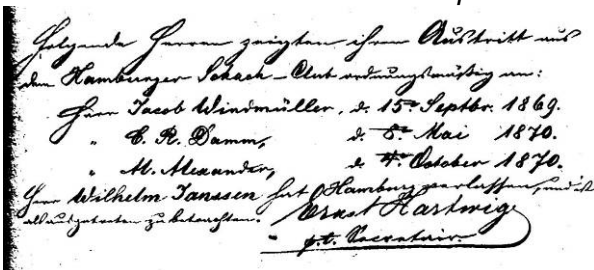 Folgende Herren zeigten ihren Austritt aus
dem Hamburger Schach-Club ordnungsmäßig an:
Herr Jacob Windmüller, d. 15t Septbr. 1869.
" C. R. Damm, d. 8t Mai 1870.
" M. Alexander, d. 4t October 1870.
Herr Wilhelm Janssen hat Hamburg verlassen, und ist
als ausgetreten zu betrachten. Ernst Hartwig
p.t. Secretair.